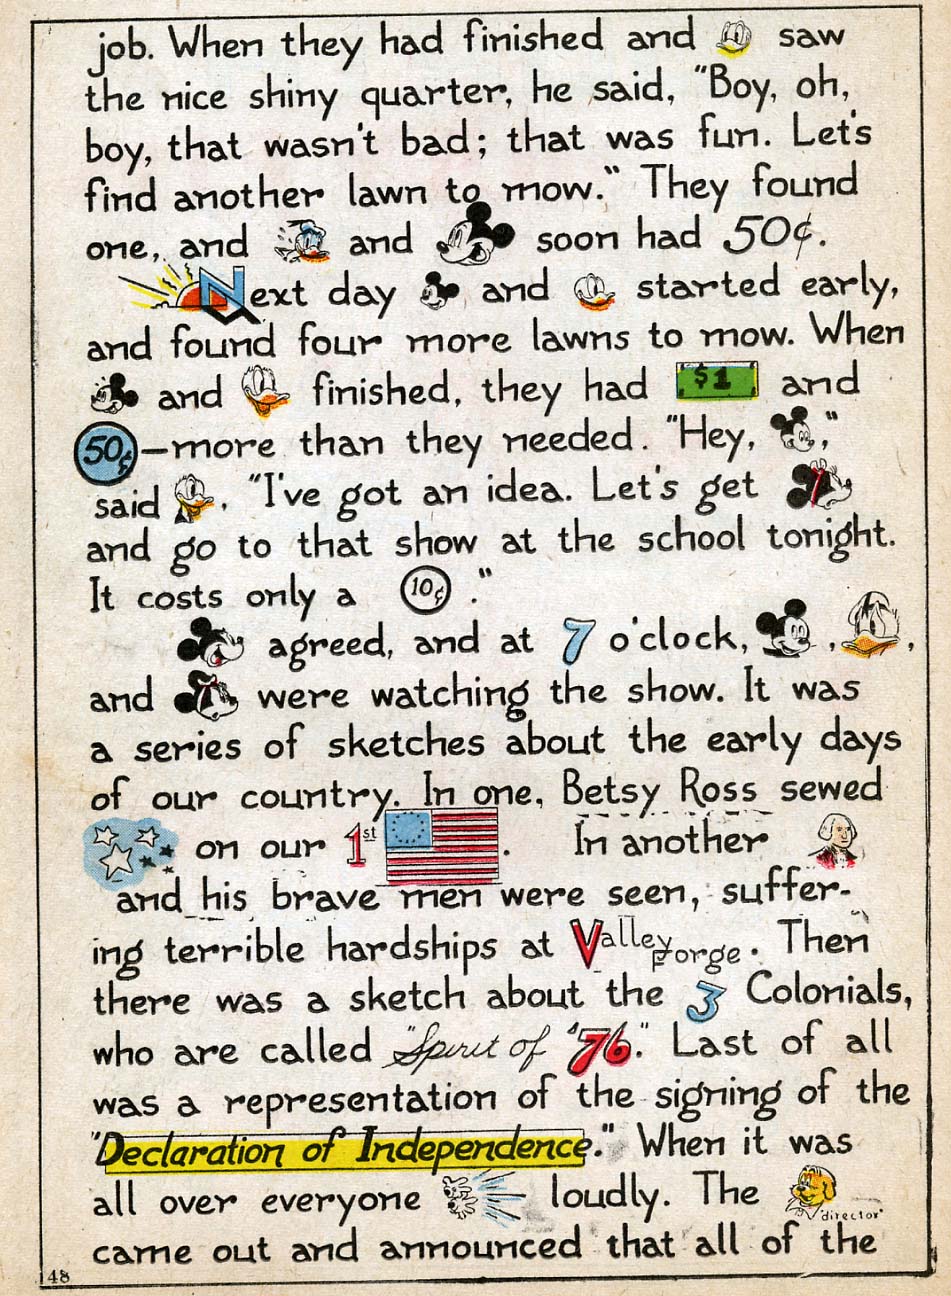 job. When they had finished and saw
the nice shiny quarter, he said, "Boy, oh,
boy, that wasn't bad; that was fun. Let's
find another lawn to mow." They found
one, and and soon had 50¢.
Next day and started early,
and found four more lawns to mow. When
and finished, they had $1 and
50¢—more than they needed. "Hey, ,"
said . "I've got an idea. Let's get
and go to that show at the school tonight.
It costs only a 10¢ ."
agreed, and at 7 o'clock, , ,
and were watching the show. It was
a series of sketches about the early days
of our country. In one, Betsy Ross sewed
on our 1st . In another
and his brave men were seen, suffer-
ing terrible hardships at Valley Forge. Then
there was a sketch about the 3 Colonials,
who are called "Spirit of '76." Last of all
was a representation of the signing of the
"Declaration of Independence." When it was
all over everyone loudly. The "director"
came out and announced that all of the
148